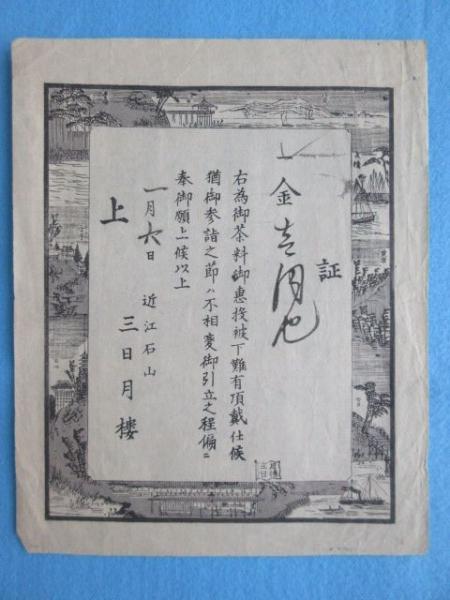 証
一金壱円也
右為御茶料御恵投被下難有頂戴仕候
猶御参詣之節ハ不相変御引立之程偏ニ
奉御願上候以上
一月六日 近江石山
三日月楼
上